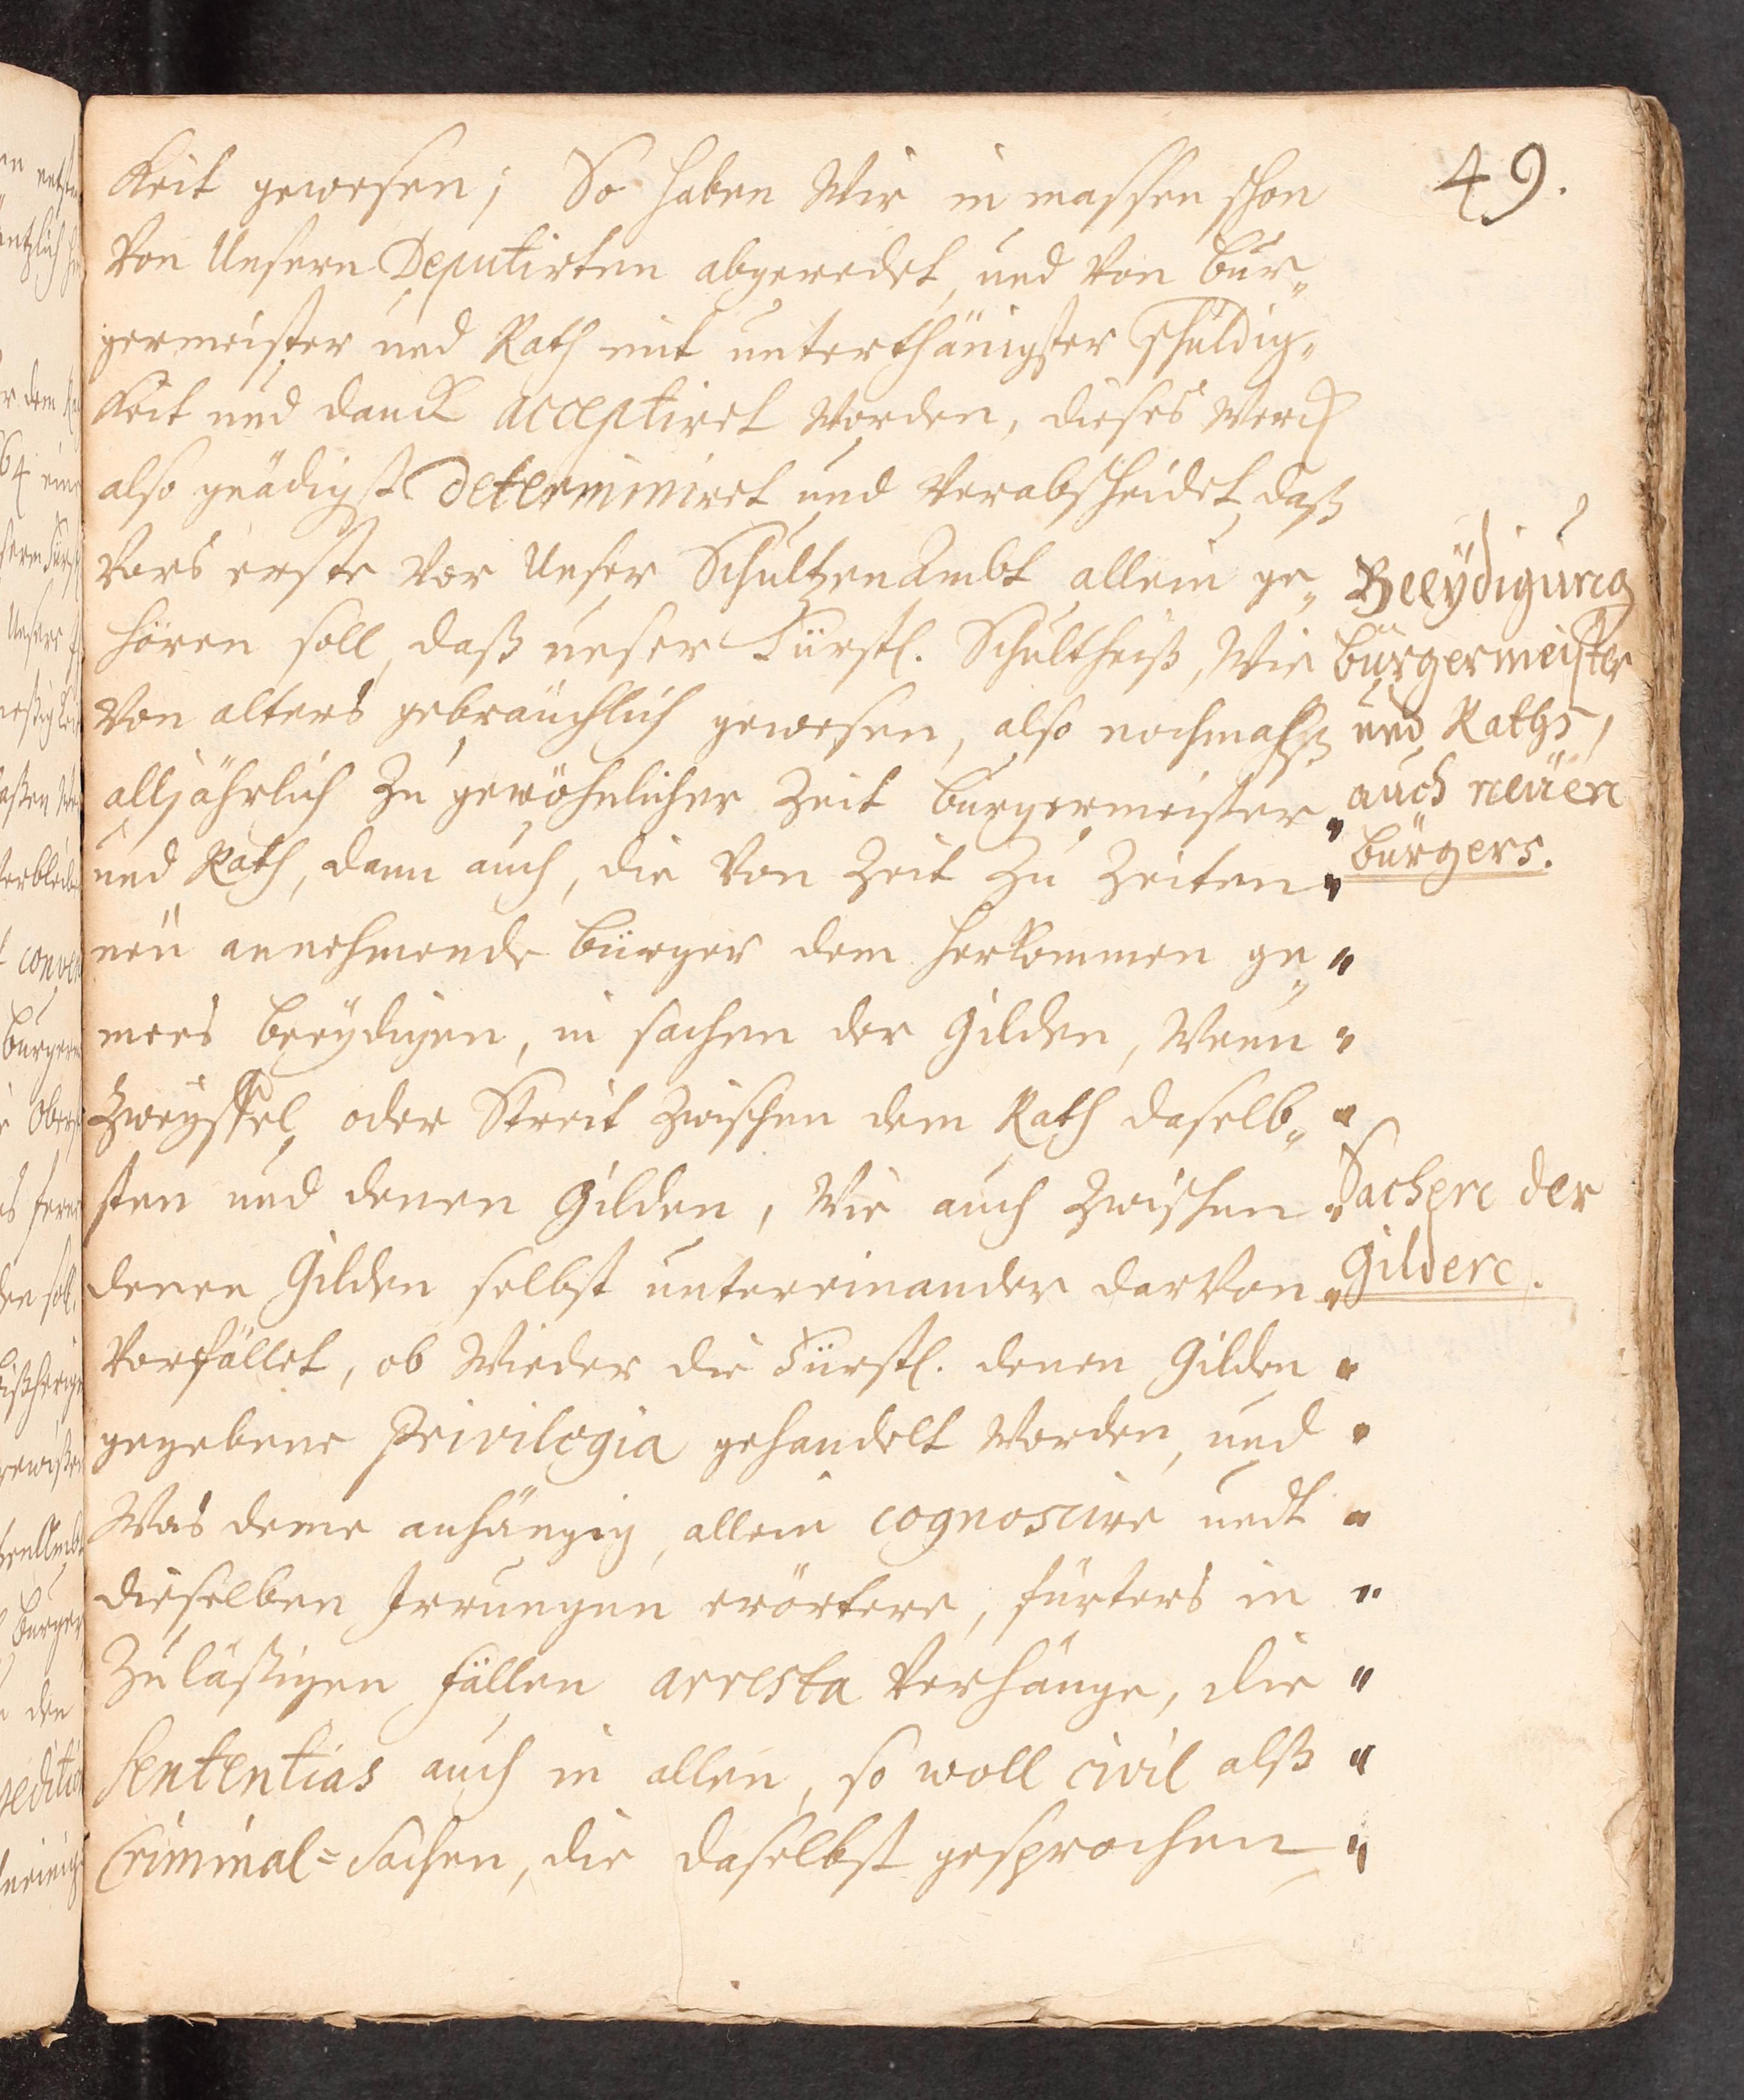 49.
keit gewesen; So haben Wir in massen schon
Von Unsern Deputirten abgeredet, und Von bur„
germeister und Rath mit unterthänigster schuldig„
keit und danck acceptiret Worden, dieses Werck
also gnädigst determiniret und Verabscheidet, daß
Vors erste Vor Unser SchultzenAmbt allein ge„
hören soll, daß unser Fürstl. Schultheiß, Wie
Von alters gebräuchlich gewesen, also nochmahlß
alljährlich Zu gewöhnlicher Zeit burgermeister
und Rath, dann auch, die Von Zeit Zu Zeiten
neü annehmende bürger dem herkommen ge„
mees beeÿdigen, in sachen der Gilden, Wenn
Zweÿffel, oder Streit Zwischen dem Rath daselb„
sten und denen Gilden, Wie auch Zwischen
denen Gilden selbst untereinander darVon
Vorfället, ob Wieder die Fürstl. denen Gilden
gegebene Privilegia gehandelt Worden, und
Was deme anhängig, allein cognoscire undt
dieselben Irrungen erörtere, fürters in
Zuläßigen fällen arresta Verhänge, die
Sententias auch in allen, so woll civil alß
Criminal=Sachen, die daselbst gesprochen
Beeÿdigung
bürgermeister
und Raths,
auch neüen
bürgers.
Sachen der
Gilden.